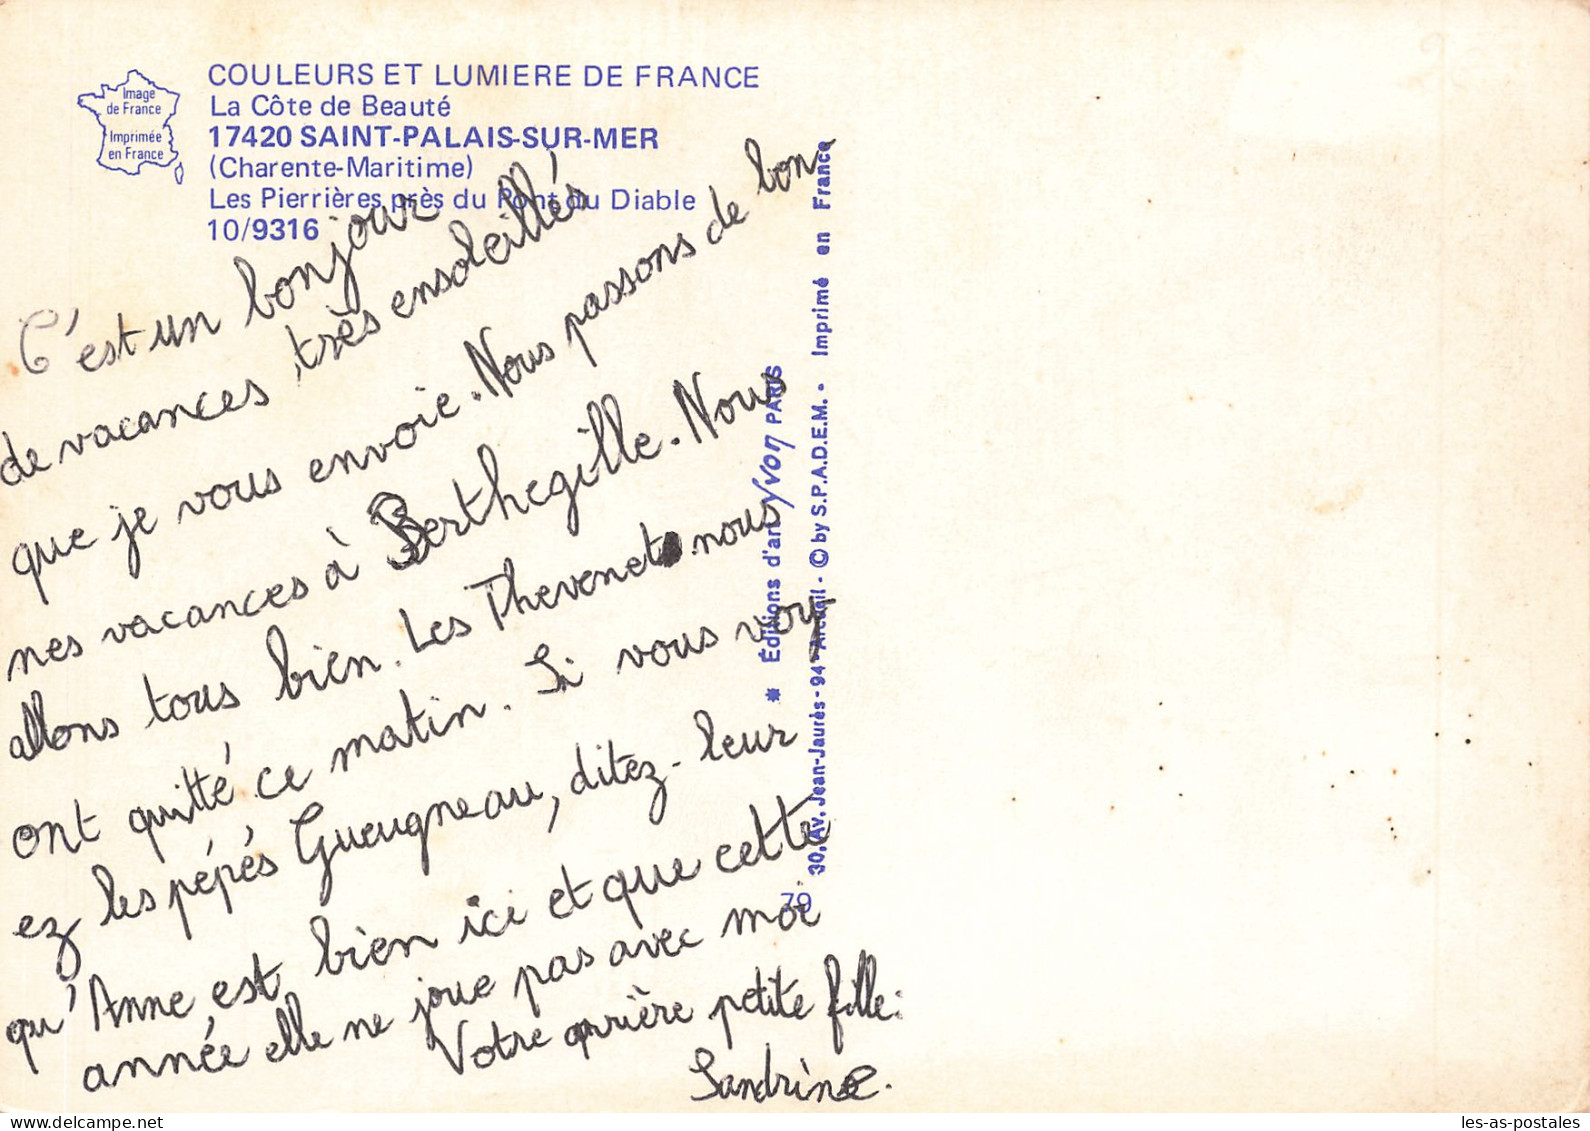 Image
de France
Imprimée
en France
COULEURS ET LUMIERE DE FRANCE
La Côte de Beauté
17420 SAINT-PALAIS-SUR-MER
(Charente-Maritime)
Les Pierrières près du Pont du Diable
10/9316
C'est un bonjour
de vacances très ensoleillés
que je vous envoie. Nous passons de bon-
nes vacances à Berthegille. Nous
allons tous bien. Les Thevenet nous
ont quitté ce matin. Si vous voy-
ez les pépés Gueugneau, ditez-leur
qu'Anne est bien ici et que cette
année elle ne joue pas avec moi
Votre arrière petite fille:
Sandrine.
* Éditions d'art Yvon PARIS
30, Av. Jean-Jaurès - 94 - Arcueil - © by S.P.A.D.E.M. - Imprimé en France
79
les-as-postales